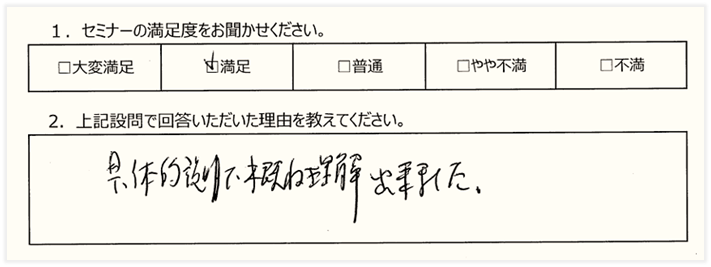 1．セミナーの満足度をお聞かせください。
□大変満足 ☑満足 □普通 □やや不満 □不満
2．上記設問で回答いただいた理由を教えてください。
具体的説明で概ね理解出来ました。